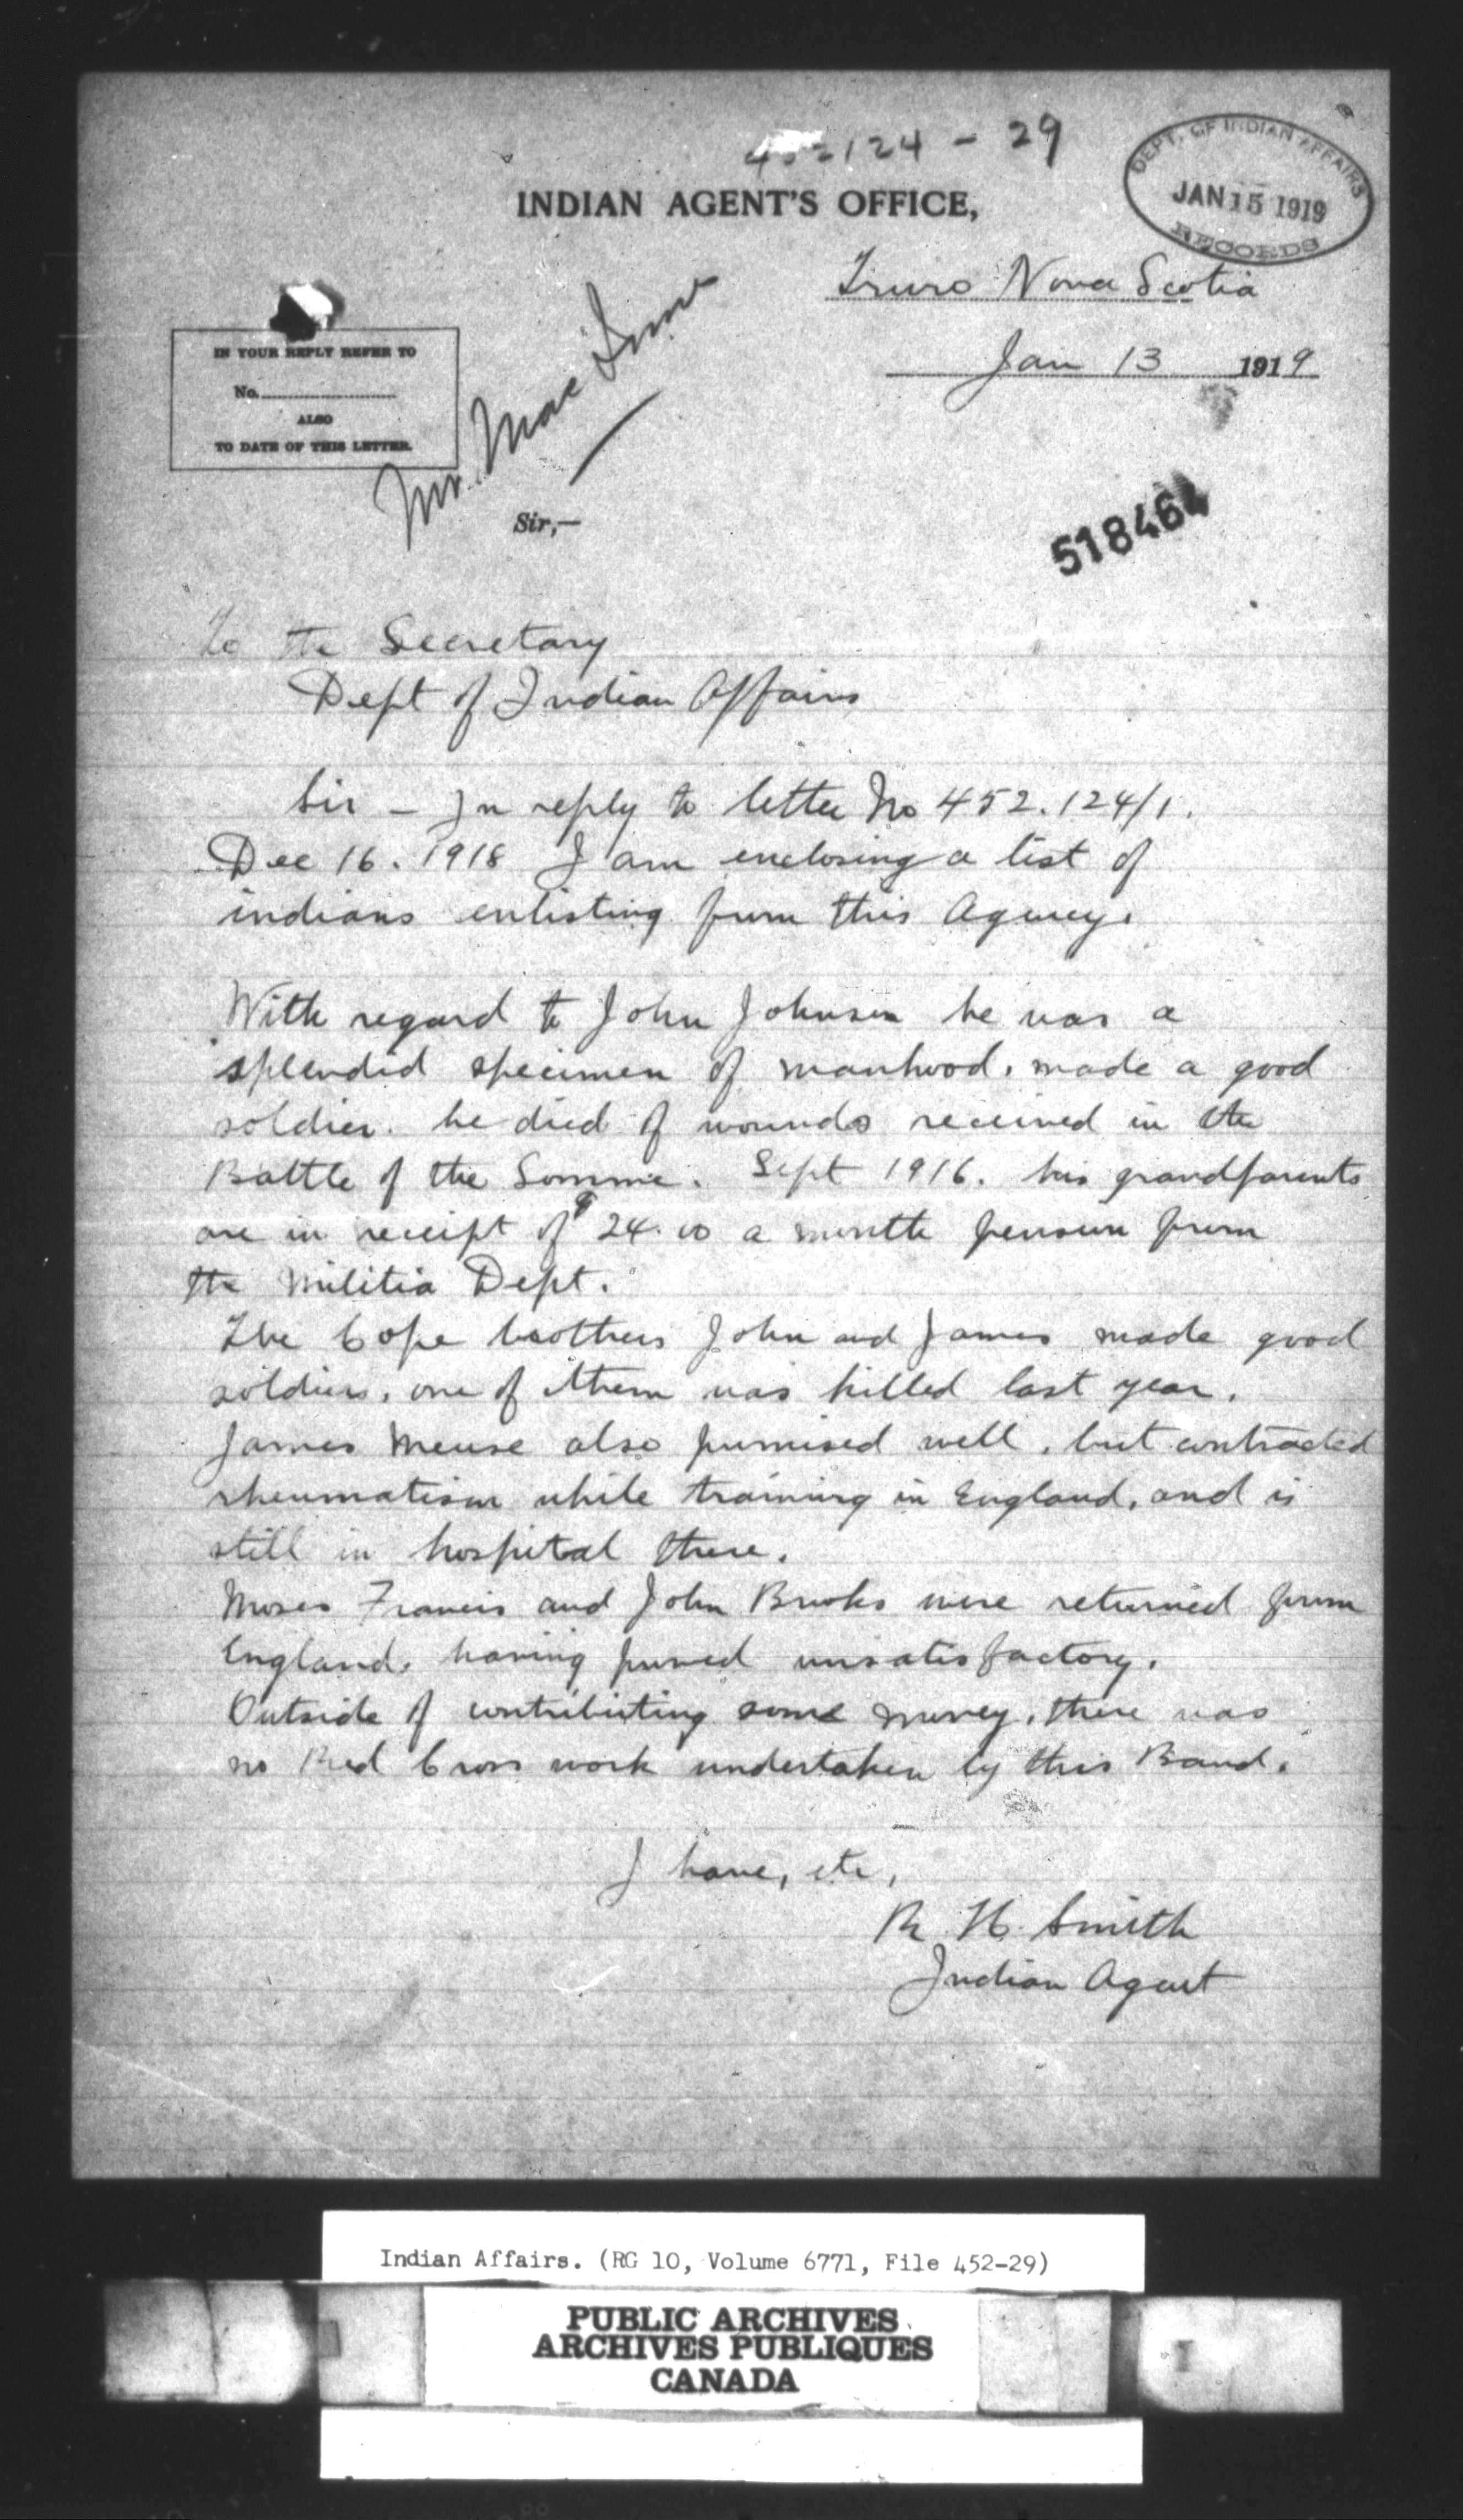 452124 - 29
DEPT. OF INDIAN AFFAIRS
JAN 15 1919
RECORDS
INDIAN AGENT'S OFFICE,
Truro Nova Scotia
Jan 13 1919
IN YOUR REPLY REFER TO
No.
ALSO
TO DATE OF THIS LETTER.
Mr. Mac
Sir,—
518464
To the Secretary
Dept of Indian Affairs
Sir - In reply to letter No 452.124/1.
Dec 16. 1918 I am enclosing a list of
indians enlisting from this Agency.
With regard to John Johnson he was a
splendid specimen of manhood, made a good
soldier. he died of wounds received in the
Battle of the Somme. Sept 1916. his grandparents
are in receipt of $24.00 a month pension from
the Militia Dept.
The Cope brothers John and James made good
soldiers, one of them was killed last year.
James Meuse also promised well, but contracted
rheumatism while training in England, and is
still in hospital there.
Moses Francis and John Brooks were returned from
England, having proved unsatisfactory.
Outside of contributing some money, there was
no Red Cross work undertaken by this Band.
I have, etc,
R. H. Smith
Indian Agent
Indian Affairs. (RG 10, Volume 6771, File 452-29)
PUBLIC ARCHIVES
ARCHIVES PUBLIQUES
CANADA